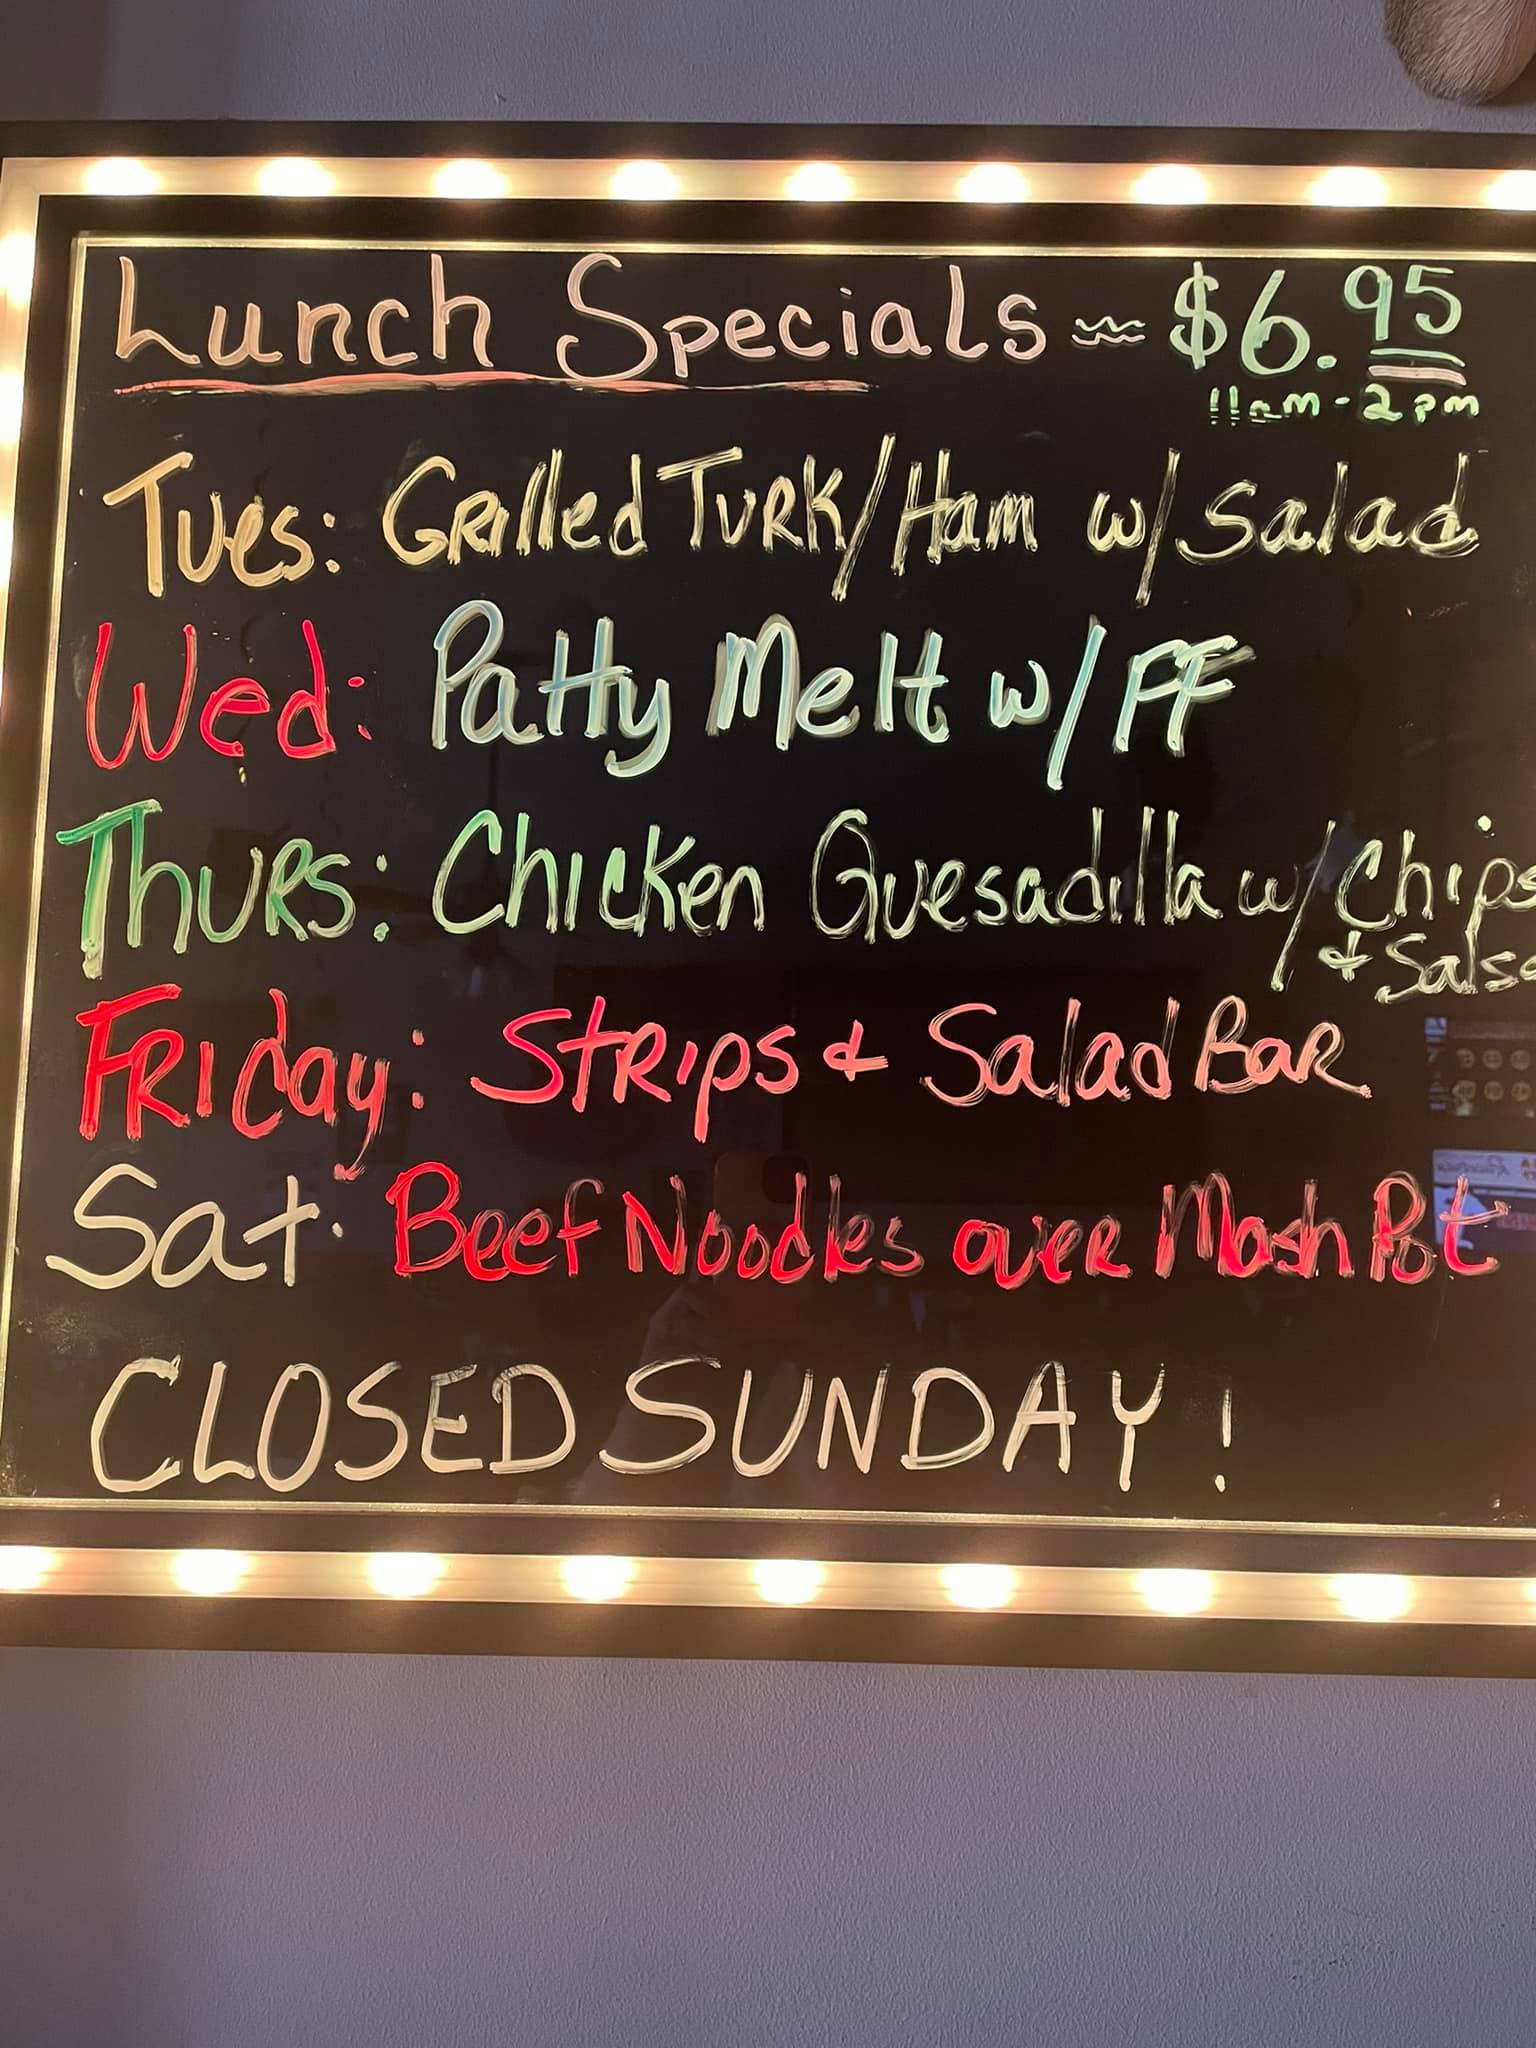 Lunch Specials ~ $6.95
11am - 2pm
Tues: Grilled Turk/Ham w/ Salad
Wed: Patty Melt w/ FF
Thurs: Chicken Quesadilla w/ Chips
& Salsa
Friday: Strips & Salad Bar
Sat: Beef Noodles over Mash Pot
CLOSED SUNDAY!